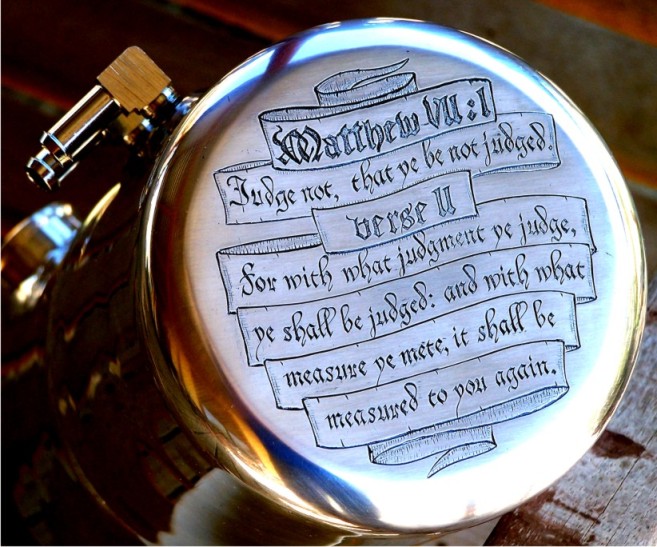 Matthew VII:I
Judge not, that ye be not judged.
verse II
For with what judgment ye judge,
ye shall be judged: and with what
measure ye mete, it shall be
measured to you again.